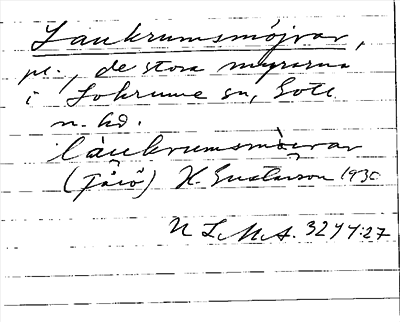 Laukrumsmöjrar,
pl., de stora myrarna
i Lokrume sn, Gotl.
n. hd.
làukrumsmòirar
(Fårö) H. Gustavson 1930
ULMA. 3244:27